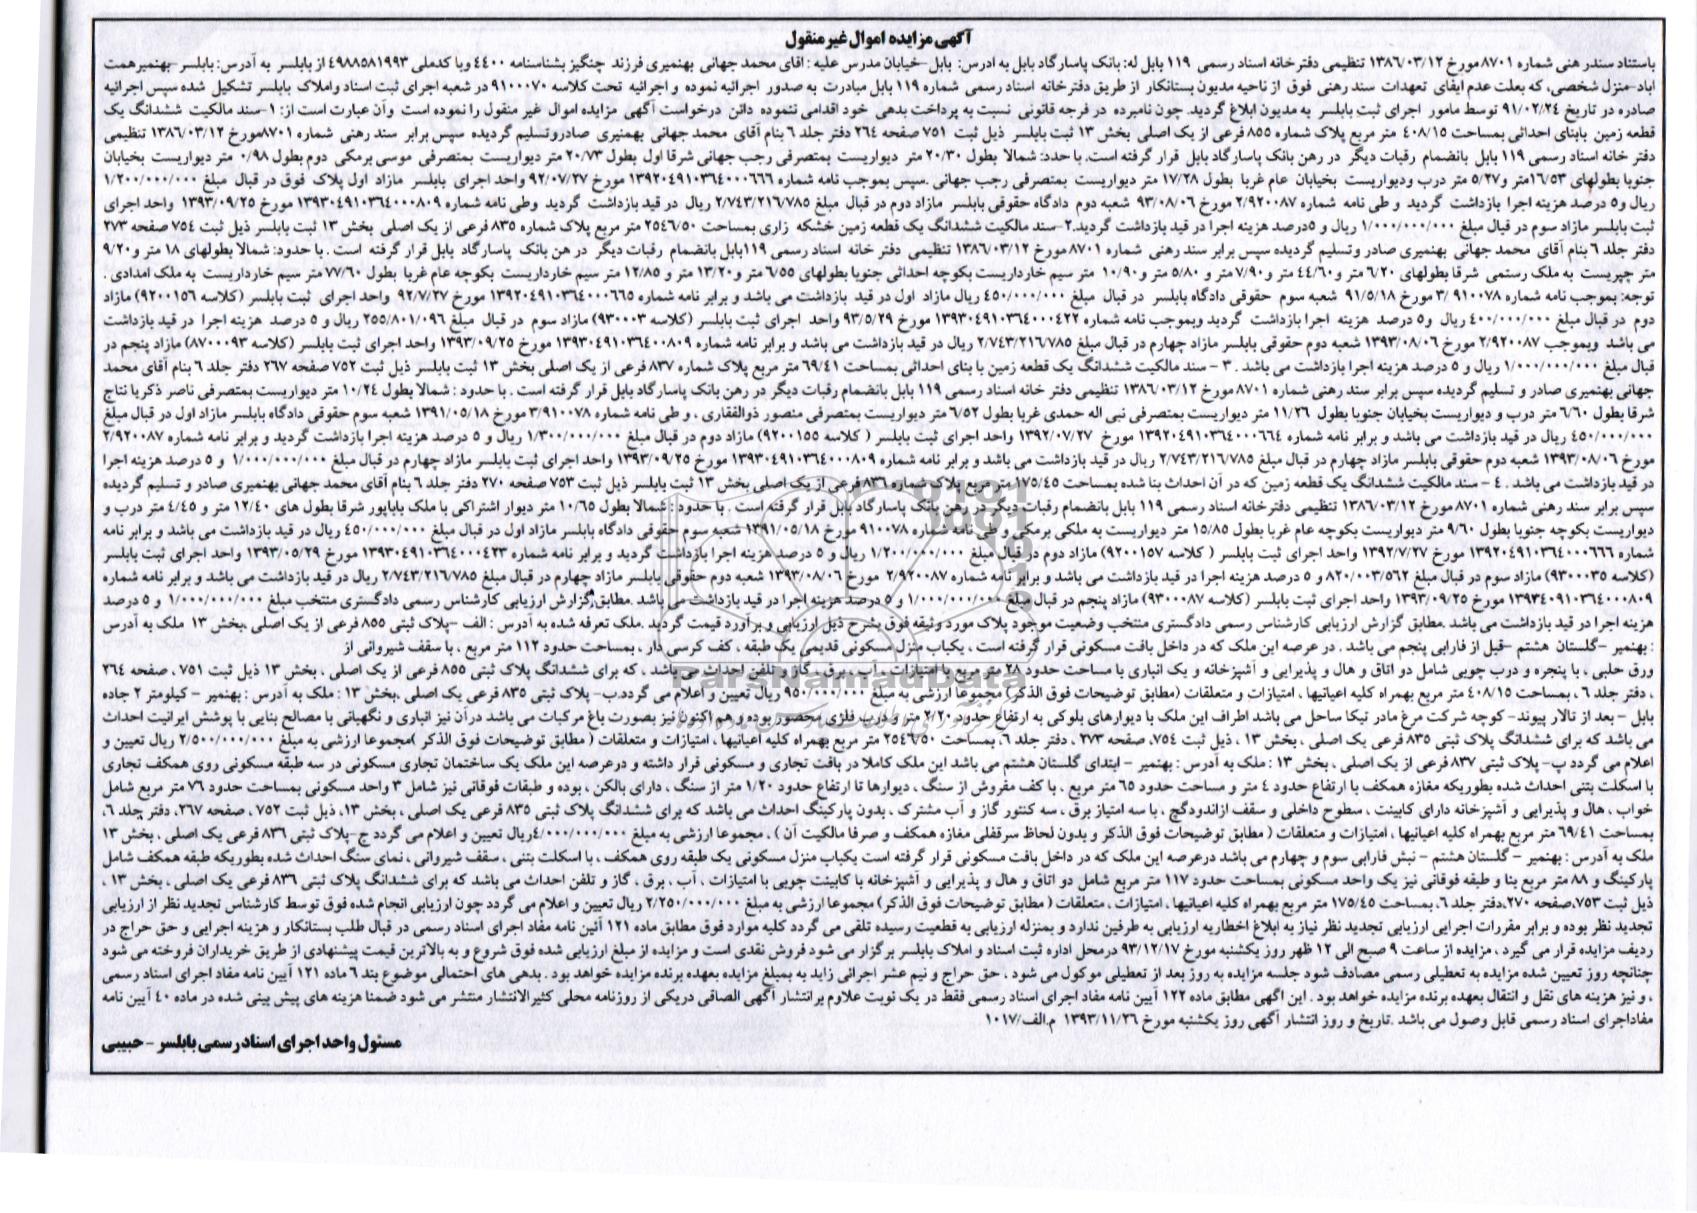 آگهی مزایده اموال غیر منقول
باستناد سندرهنی شماره ۸۷۰۱مورخ ۱۳۸۶/۰۳/۱۲ تنظیمی دفترخانه اسناد رسمی ۱۱۹ بابل له: بانک پاسارگاد بابل به ادرس: بابل-خیابان مدرس علیه : اقای محمد جهانی بهنمیری فرزند چنگیز بشناسنامه ۴۴۰۰ وبا کدملی ۴۹۸۸۵۸۱۹۹۳ از بابلسر به آدرس: بابلسر-بهنمیرهمت
اباد-منزل شخصی، که بعلت عدم ایفای تعهدات سند رهنی فوق از ناحیه مدیون بستانکار از طریق دفترخانه اسناد رسمی شماره ۱۱۹ بابل مبادرت به صدور اجرائیه نموده و اجرائیه تحت کلاسه ۹۱۰۰۰۷۰ در شعبه اجرای ثبت اسناد واملاک بابلسر تشکیل شده سپس اجرائیه
صادره در تاریخ ۹۱/۰۲/۲۴ توسط مامور اجرای ثبت بابلسر به مدیون ابلاغ گردید. چون نامبرده در فرجه قانونی نسبت به پرداخت بدهی خود اقدامی ننموده دائن درخواست آگهی مزایده اموال غیر منقول را نموده است وآن عبارت است از: ۱-سند مالکیت ششدانگ یک
قطعه زمین بابنای احداثی بمساحت ۴۰۸/۱۵ متر مربع پلاک شماره ۸۵۵ فرعی از یک اصلی بخش ۱۳ ثبت بابلسر ذیل ثبت ۷۵۱ صفحه ۲۶۴ دفتر جلد ۶ بنام آقای محمد جهانی بهنمیری صادروتسلیم گردیده سپس برابر سند رهنی شماره ۸۷۰۱مورخ ۱۳۸۶/۰۳/۱۲ تنظیمی
دفتر خانه اسناد رسمی ۱۱۹ بابل بانضمام رقبات دیگر در رهن بانک پاسارگاد بابل قرار گرفته است. با حدد: شمالا بطول ۲۰/۳۰ متر دیواریست بمتصرفی رجب جهانی شرقا اول بطول ۲۰/۷۳ متر دیواریست بمتصرفی موسی برمکی دوم بطول ۰/۹۸ متر دیواریست بخیابان
جنوبا بطولهای ۱۶/۵۳متر و۵/۲۷ متر درب ودیواریست بخیابان عام غربا بطول ۱۷/۲۸ متر دیواریست بمتصرفی رجب جهانی .سپس بموجب نامه شماره ۱۳۹۲۰۴۹۱۰۳۶۴۰۰۰۶۶۶ مورخ ۹۲/۰۷/۲۷ واحد اجرای بابلسر مازاد اول پلاک فوق در قبال مبلغ ۱/۲۰۰/۰۰۰/۰۰۰
ریال و۵ درصد هزینه اجرا بازداشت گردید و طی نامه شماره ۲/۹۲۰۰۸۷ مورخ ۹۳/۰۸/۰۶ شعبه دوم دادگاه حقوقی بابلسر مازاد دوم در قبال مبلغ ۲/۷۴۳/۲۱۶/۷۸۵ ریال در قید بازداشت گردید وطی نامه شماره ۱۳۹۳۰۴۹۱۰۳۶۴۰۰۰۸۰۹ مورخ ۱۳۹۳/۰۹/۲۵ واحد اجرای
ثبت بابلسر مازاد سوم در قبال مبلغ ۱/۰۰۰/۰۰۰/۰۰۰ ریال و ۵درصد هزینه اجرا در قید بازداشت گردید.۲-سند مالکیت ششدانگ یک قطعه زمین خشکه زاری بمساحت ۲۵۴۶/۵۰ متر مربع پلاک شماره ۸۳۵ فرعی از یک اصلی بخش ۱۳ ثبت بابلسر ذیل ثبت ۷۵۴ صفحه ۲۷۳
دفتر جلد ۶ بنام آقای محمد جهانی بهنمیری صادر وتسلیم گردیده سپس برابر سند رهنی شماره ۸۷۰۱مورخ ۱۳۸۶/۰۳/۱۲ تنظیمی دفتر خانه اسناد رسمی ۱۱۹بابل بانضمام رقبات دیگر در هن بانک پاسارگاد بابل قرار گرفته است . با حدود: شمالا بطولهای ۱۸ متر و۹/۲۰
متر چپریست به ملک رستمی شرقا بطولهای ۶/۲۰ متر و۴۴/۶۰ متر و۷/۹۰متر و ۵/۸۰ متر و۱۰/۹۰ متر سیم خارداریست بکوچه احداثی جنوبا بطولهای ۶/۵۵ متر و۱۳/۲۰ متر و ۱۲/۸۵ متر سیم خارداریست بکوچه عام غربا بطول ۷۷/۶۰ متر سیم خارداریست به ملک امدادی .
توجه: بموجب نامه شماره ۳/۹۱۰۰۷۸ مورخ ۹۱/۵/۱۸ شعبه سوم حقوقی دادگاه بابلسر در قبال مبلغ ۴۵۰/۰۰۰/۰۰۰ ریال مازاد اول در قید بازداشت می باشد و برابر نامه شماره ۱۳۹۲۰۴۹۱۰۳۶۴۰۰۰۶۶۵ مورخ ۹۲/۷/۲۷ واحد اجرای ثبت بابلسر (کلاسه ۹۲۰۰۱۵۶) مازاد
دوم در قبال مبلغ ۴۰۰/۰۰۰/۰۰۰ ریال و۵ درصد هزینه اجرا بازداشت گردید وبموجب نامه شماره ۱۳۹۳۰۴۹۱۰۳۶۴۰۰۰۴۲۲ مورخ ۹۳/۵/۲۹ واحد اجرای ثبت بابلسر (کلاسه ۹۳۰۰۰۳) مازاد سوم در قبال مبلغ ۲۵۵/۸۰۱/۰۹۶ ریال و ۵ درصد هزینه اجرا در قید بازداشت
می باشد وبموجب ۲/۹۲۰۰۸۷ مورخ ۱۳۹۳/۰۸/۰۶ شعبه دوم حقوقی بابلسر مازاد چهارم در قبال مبلغ ۲/۷۴۳/۲۱۶/۷۸۵ ریال در قید بازداشت می باشد و برابر نامه شماره ۱۳۹۳۰۴۹۱۰۳۶۴۰۰۰۸۰۹ مورخ ۱۳۹۳/۰۹/۲۵ واحد اجرای ثبت بابلسر (کلاسه ۸۷۰۰۰۹۳) مازاد پنجم در
قبال مبلغ ۱/۰۰۰/۰۰۰/۰۰۰ ریال و ۵ درصد هزینه اجرا بازداشت می باشد . ۳ - سند مالکیت ششدانگ یک قطعه زمین با بنای احداثی بمساحت ۶۹/۴۱ متر مربع پلاک شماره ۸۳۷ فرعی از یک اصلی بخش ۱۳ ثبت بابلسر ذیل ثبت ۷۵۲ صفحه ۲۶۷ دفتر جلد ۶ بنام آقای محمد
جهانی بهنمیری صادر و تسلیم گردیده سپس برابر سند رهنی شماره ۸۷۰۱مورخ ۱۳۸۶/۰۳/۱۲ تنظیمی دفتر خانه اسناد رسمی ۱۱۹ بابل بانضمام رقبات دیگر در رهن بانک پاسارگاد بابل قرار گرفته است . با حدود : شمالا بطول ۱۰/۲۴ متر دیواریست بمتصرفی ناصر ذکریا نتاج
شرقا بطول ۶/۶۰ متر درب و دیواریست بخیابان جنوبا بطول ۱۱/۲۶ متر دیواریست بمتصرفی نبی اله حمدی غربا بطول ۶/۵۲ متر دیواریست بمتصرفی منصور ذوالفقاری . و طی نامه شماره ۳/۹۱۰۰۷۸ مورخ ۱۳۹۱/۰۵/۱۸ شعبه سوم حقوقی دادگاه بابلسر مازاد اول در قبال مبلغ
۴۵۰/۰۰۰/۰۰۰ ریال در قید بازداشت می باشد و برابر نامه شماره ۱۳۹۲۰۴۹۱۰۳۶۴۰۰۰۶۶۴ مورخ ۱۳۹۲/۰۷/۲۷ واحد اجرای ثبت بابلسر ( کلاسه ۹۲۰۰۱۵۵) مازاد دوم در قبال مبلغ ۱/۳۰۰/۰۰۰/۰۰۰ ریال و ۵ درصد هزینه اجرا بازداشت گردید و برابر نامه شماره ۲/۹۲۰۰۸۷
مورخ ۱۳۹۳/۰۸/۰۶ شعبه دوم حقوقی بابلسر مازاد چهارم در قبال مبلغ ۲/۷۴۳/۲۱۶/۷۸۵ ریال در قید بازداشت می باشد و برابر نامه شماره ۱۳۹۳۰۴۹۱۰۳۶۴۰۰۰۸۰۹ مورخ ۱۳۹۳/۰۹/۲۵ واحد اجرای ثبت بابلسر مازاد چهارم در قبال مبلغ ۱/۰۰۰/۰۰۰/۰۰۰ و ۵ درصد هزینه اجرا
در قید بازداشت می باشد . ۴ - سند مالکیت ششدانگ یک قطعه زمین که در آن احداث بنا شده بمساحت ۱۷۵/۴۵ متر مربع پلاک شماره ۸۳۶ فرعی از یک اصلی بخش ۱۳ ثبت بابلسر ذیل ثبت ۷۵۳ صفحه ۲۷۰ دفتر جلد ۶ بنام آقای محمد جهانی بهنمیری صادر و تسلیم گردیده
سپس برابر سند رهنی شماره ۸۷۰۱مورخ ۱۳۸۶/۰۳/۱۲ تنظیمی دفترخانه اسناد رسمی ۱۱۹ بابل بانضمام رقبات دیگر در رهن بانک پاسارگاد بابل قرار گرفته است . با حدود : شمالا بطول ۱۰/۶۵ متر دیوار اشتراکی با ملک باباپور شرقا بطول های ۱۲/۴۰ متر و ۴/۴۵ متر درب و
دیواریست بکوچه جنوبا بطول ۹/۶۰ متر دیواریست بکوچه عام غربا بطول ۱۵/۸۵ متر دیواریست به ملکی برمکی و طی نامه شماره ۹۱۰۰۷۸ مورخ ۱۳۹۱/۰۵/۱۸ شعبه سوم حقوقی دادگاه بابلسر مازاد اول در قبال مبلغ ۴۵۰/۰۰۰/۰۰۰ ریال در قید بازداشت می باشد و برابر نامه
شماره ۱۳۹۲۰۴۹۱۰۳۶۴۰۰۰۶۶۶ مورخ ۱۳۹۲/۷/۲۷ واحد اجرای ثبت بابلسر ( کلاسه ۹۲۰۰۱۵۷) مازاد دوم در قبال مبلغ ۱/۲۰۰/۰۰۰/۰۰۰ ریال و ۵ درصد هزینه اجرا بازداشت گردید و برابر نامه شماره ۱۳۹۳۰۴۹۱۰۳۶۴۰۰۰۴۲۳ مورخ ۱۳۹۳/۰۵/۲۹ واحد اجرای ثبت بابلسر
(کلاسه ۹۳۰۰۰۳۵) مازاد سوم در قبال مبلغ ۸۲۰/۰۰۳/۵۶۲ و ۵ درصد هزینه اجرا در قید بازداشت می باشد و برابر نامه شماره ۲/۹۲۰۰۸۷ مورخ ۱۳۹۳/۰۸/۰۶ شعبه دوم حقوقی بابلسر مازاد چهارم در قبال مبلغ ۲/۷۴۳/۲۱۶/۷۸۵ ریال در قید بازداشت می باشد و برابر نامه شماره
۱۳۹۳۴۰۹۱۰۳۶۴۰۰۰۸۰۹ مورخ ۱۳۹۳/۰۹/۲۵ واحد اجرای ثبت بابلسر (کلاسه ۹۳۰۰۰۸۷) مازاد پنجم در قبال مبلغ ۱/۰۰۰/۰۰۰/۰۰۰ و ۵ درصد هزینه اجرا در قید بازداشت می باشد .مطابق گزارش ارزیابی کارشناس رسمی دادگستری منتخب مبلغ ۱/۰۰۰/۰۰۰/۰۰۰ و ۵ درصد
هزینه اجرا در قید بازداشت می باشد .مطابق گزارش ارزیابی کارشناس رسمی دادگستری منتخب وضعیت موجود پلاک مورد وثیقه فوق بشرح ذیل ارزیابی و برآورد قیمت گردید .ملک تعرفه شده به آدرس : الف -پلاک ثبتی ۸۵۵ فرعی از یک اصلی ،بخش ۱۳ ملک به آدرس
: بهنمیر -گلستان هشتم -قبل از فارابی پنجم می باشد . در عرصه این ملک که در داخل بافت مسکونی قرار گرفته است ، یکباب منزل مسکونی قدیمی یک طبقه ، کف کرسی دار ، بمساحت حدود ۱۱۲ متر مربع ، با سقف شیروانی از
ورق حلبی ، با پنجره و درب چوبی شامل دو اتاق و هال و پذیرایی و آشپزخانه و یک انباری با مساحت حدود ۲۸ متر مربع با امتیازات آب ، برق ، گاز و تلفن احداث می باشد ، که برای ششدانگ پلاک ثبتی ۸۵۵ فرعی از یک اصلی ، بخش ۱۳ ذیل ثبت ۷۵۱ ، صفحه ۲۶۴
، دفتر جلد ۶ ، بمساحت ۴۰۸/۱۵ متر مربع بهمراه کلیه اعیانیها ، امتیازات و متعلقات (مطابق توضیحات فوق الذکر) مجموعا ارزشی به مبلغ ۹۵۰/۰۰۰/۰۰۰ ریال تعیین و اعلام می گردد.ب- پلاک ثبتی ۸۳۵ فرعی یک اصلی ،بخش ۱۳ : ملک به آدرس : بهنمیر - کیلومتر ۲ جاده
بابل - بعد از تالار پیوند- کوچه شرکت مرغ مادر تیکا ساحل می باشد اطراف این ملک با دیوارهای بلوکی به ارتفاع حدود ۲/۲۰ متر و درب فلزی محصور بوده و هم اکنون نیز بصورت باغ مرکبات می باشد در آن نیز انباری و نگهبانی با مصالح بنایی با پوشش ایرانیت احداث
می باشد که برای ششدانگ پلاک ثبتی ۸۳۵ فرعی یک اصلی ، بخش ۱۳ ، ذیل ثبت ۷۵۴ ، صفحه ۲۷۳ ، دفتر جلد ۶، بمساحت ۲۵۴۶/۵۰ متر مربع بهمراه کلیه اعیانیها ، امتیازات و متعلقات ( مطابق توضیحات فوق الذکر )مجموعا ارزشی به مبلغ ۲/۵۰۰/۰۰۰/۰۰۰ ریال تعیین و
اعلام می گردد پ- پلاک ثبتی ۸۳۷ فرعی از یک اصلی ، بخش ۱۳ : ملک به آدرس : بهنمیر - ابتدای گلستان هشتم می باشد این ملک کاملا در بافت تجاری و مسکونی قرار داشته و درعرصه این ملک یک ساختمان تجاری مسکونی در سه طبقه مسکونی روی همکف تجاری
با اسکلت بتنی احداث شده بطوریکه مغازه همکف با ارتفاع حدود ۴ متر و مساحت حدود ۶۵ متر مربع ، با کف مفروش از سنگ ، دیوارها تا ارتفاع حدود ۱/۲۰ متر از سنگ ، دارای بالکن ، بوده و طبقات فوقانی نیز شامل ۳ واحد مسکونی بمساحت حدود ۷۶ متر مربع شامل
خواب ، هال و پذیرایی و آشپزخانه دارای کابینت ، سطوح داخلی و سقف ازاندودگچ ، با سه امتیاز برق ، سه کنتور گاز و آب مشترک ، بدون پارکینگ احداث می باشد که برای ششدانگ پلاک ثبتی ۸۳۵ فرعی یک اصلی ، بخش ۱۳، ذیل ثبت ۷۵۲ ، صفحه ۲۶۷، دفتر جلد ۶،
بمساحت ۶۹/۴۱ متر مربع بهمراه کلیه اعیانیها ، امتیازات و متعلقات ( مطابق توضیحات فوق الذکر و بدون لحاظ سرقفلی مغازه همکف و صرفا مالکیت آن ) ، مجموعا ارزشی به مبلغ ۴/۰۰۰/۰۰۰/۰۰۰ریال تعیین و اعلام می گردد ج-پلاک ثبتی ۸۳۶ فرعی یک اصلی ، بخش ۱۳
ملک به آدرس : بهنمیر - گلستان هشتم - نبش فارابی سوم و چهارم می باشد درعرصه این ملک که در داخل بافت مسکونی قرار گرفته است یکباب منزل مسکونی یک طبقه روی همکف ، با اسکلت بتنی ، سقف شیروانی ، نمای سنگ احداث شده بطوریکه طبقه همکف شامل
پارکینگ و ۸۸ متر مربع بنا و طبقه فوقانی نیز یک واحد مسکونی بمساحت حدود ۱۱۷ متر مربع شامل دو اتاق و هال و پذیرایی و آشپزخانه با کابینت چوبی با امتیازات ، آب ، برق ، گاز و تلفن احداث می باشد که برای ششدانگ پلاک ثبتی ۸۳۶ فرعی یک اصلی ، بخش ۱۳ ،
ذیل ثبت ۷۵۳،صفحه ۲۷۰،دفتر جلد ۶، بمساحت ۱۷۵/۴۵ متر مربع بهمراه کلیه اعیانیها ، امتیازات ، متعلقات ( مطابق توضیحات فوق الذکر) مجموعا ارزشی به مبلغ ۲/۲۵۰/۰۰۰/۰۰۰ ریال تعیین و اعلام می گردد چون ارزیابی انجام شده فوق توسط کارشناس تجدید نظر از ارزیابی
تجدید نظر بوده و برابر مقررات اجرایی ارزیابی تجدید نظر نیاز به ابلاغ اخطاریه ارزیابی به طرفین ندارد و بمنزله ارزیابی به قطعیت رسیده تلقی می گردد کلیه موارد فوق مطابق ماده ۱۲۱ آئین نامه مفاد اجرای اسناد رسمی در قبال طلب بستانکار و هزینه اجرایی و حق حراج در
ردیف مزایده قرار می گیرد . مزایده از ساعت ۹ صبح الی ۱۲ ظهر روز یکشنبه مورخ ۹۳/۱۲/۱۷ درمحل اداره ثبت اسناد و املاک بابلسر برگزار می شود فروش نقدی است و مزایده از مبلغ ارزیابی شده فوق شروع و به بالاترین قیمت پیشنهادی از طریق خریداران فروخته می شود
چنانچه روز تعیین شده مزایده به تعطیلی رسمی مصادف شود جلسه مزایده به روز بعد از تعطیلی موکول می شود ، حق حراج و نیم عشر اجرائی زاید به بمبلغ مزایده بعهده برنده مزایده خواهد بود . بدهی های احتمالی موضوع بند ۶ ماده ۱۲۱ آیین نامه مفاد اجرای اسناد رسمی
، و نیز هزینه های نقل و انتقال بعهده برنده مزایده خواهد بود . این اگهی مطابق ماده ۱۲۲ آیین نامه مفاد اجرای اسناد رسمی فقط در یک نوبت علاوه برانتشار آگهی الصاقی دریکی از روزنامه محلی کثیرالانتشار منتشر می شود ضمنا هزینه های پیش بینی شده در ماده ۴۰ آیین نامه
مفاداجرای اسناد رسمی قابل وصول می باشد .تاریخ و روز انتشار آگهی روز یکشنبه مورخ ۱۳۹۳/۱۱/۲۶ م.الف/۱۰۱۷
مسئول واحد اجرای اسناد رسمی بابلسر - حبیبی
ParsNamadData